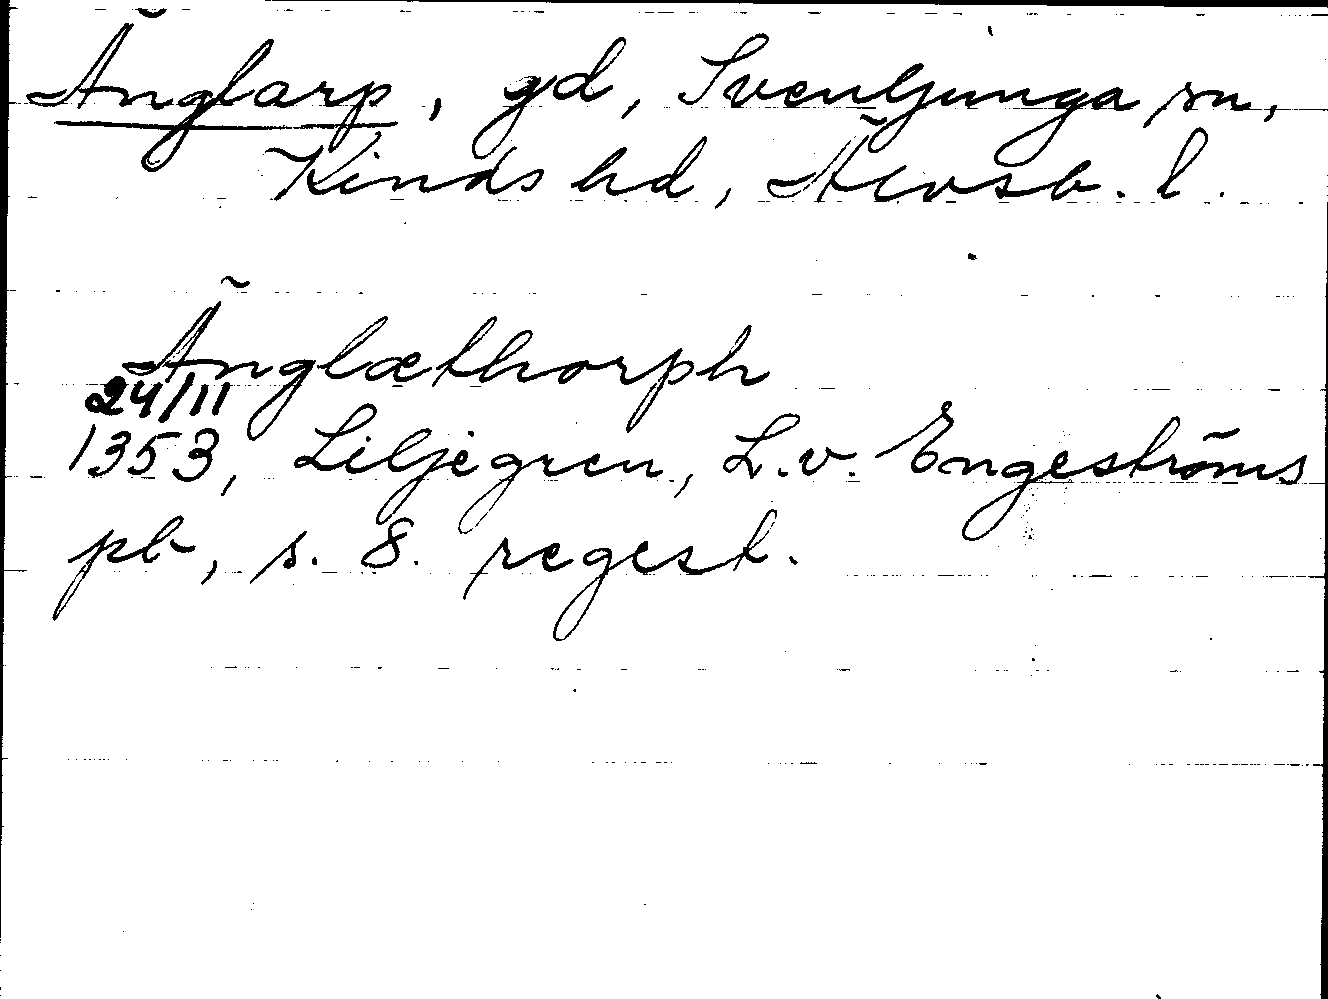 Änglarp, gd, Svenljunga sn,
Kinds hd, Älvsb. l.
Änglæthorph
24/11
1353, Liljegren, L.v. Engeströms
pb, s. 8. regest.